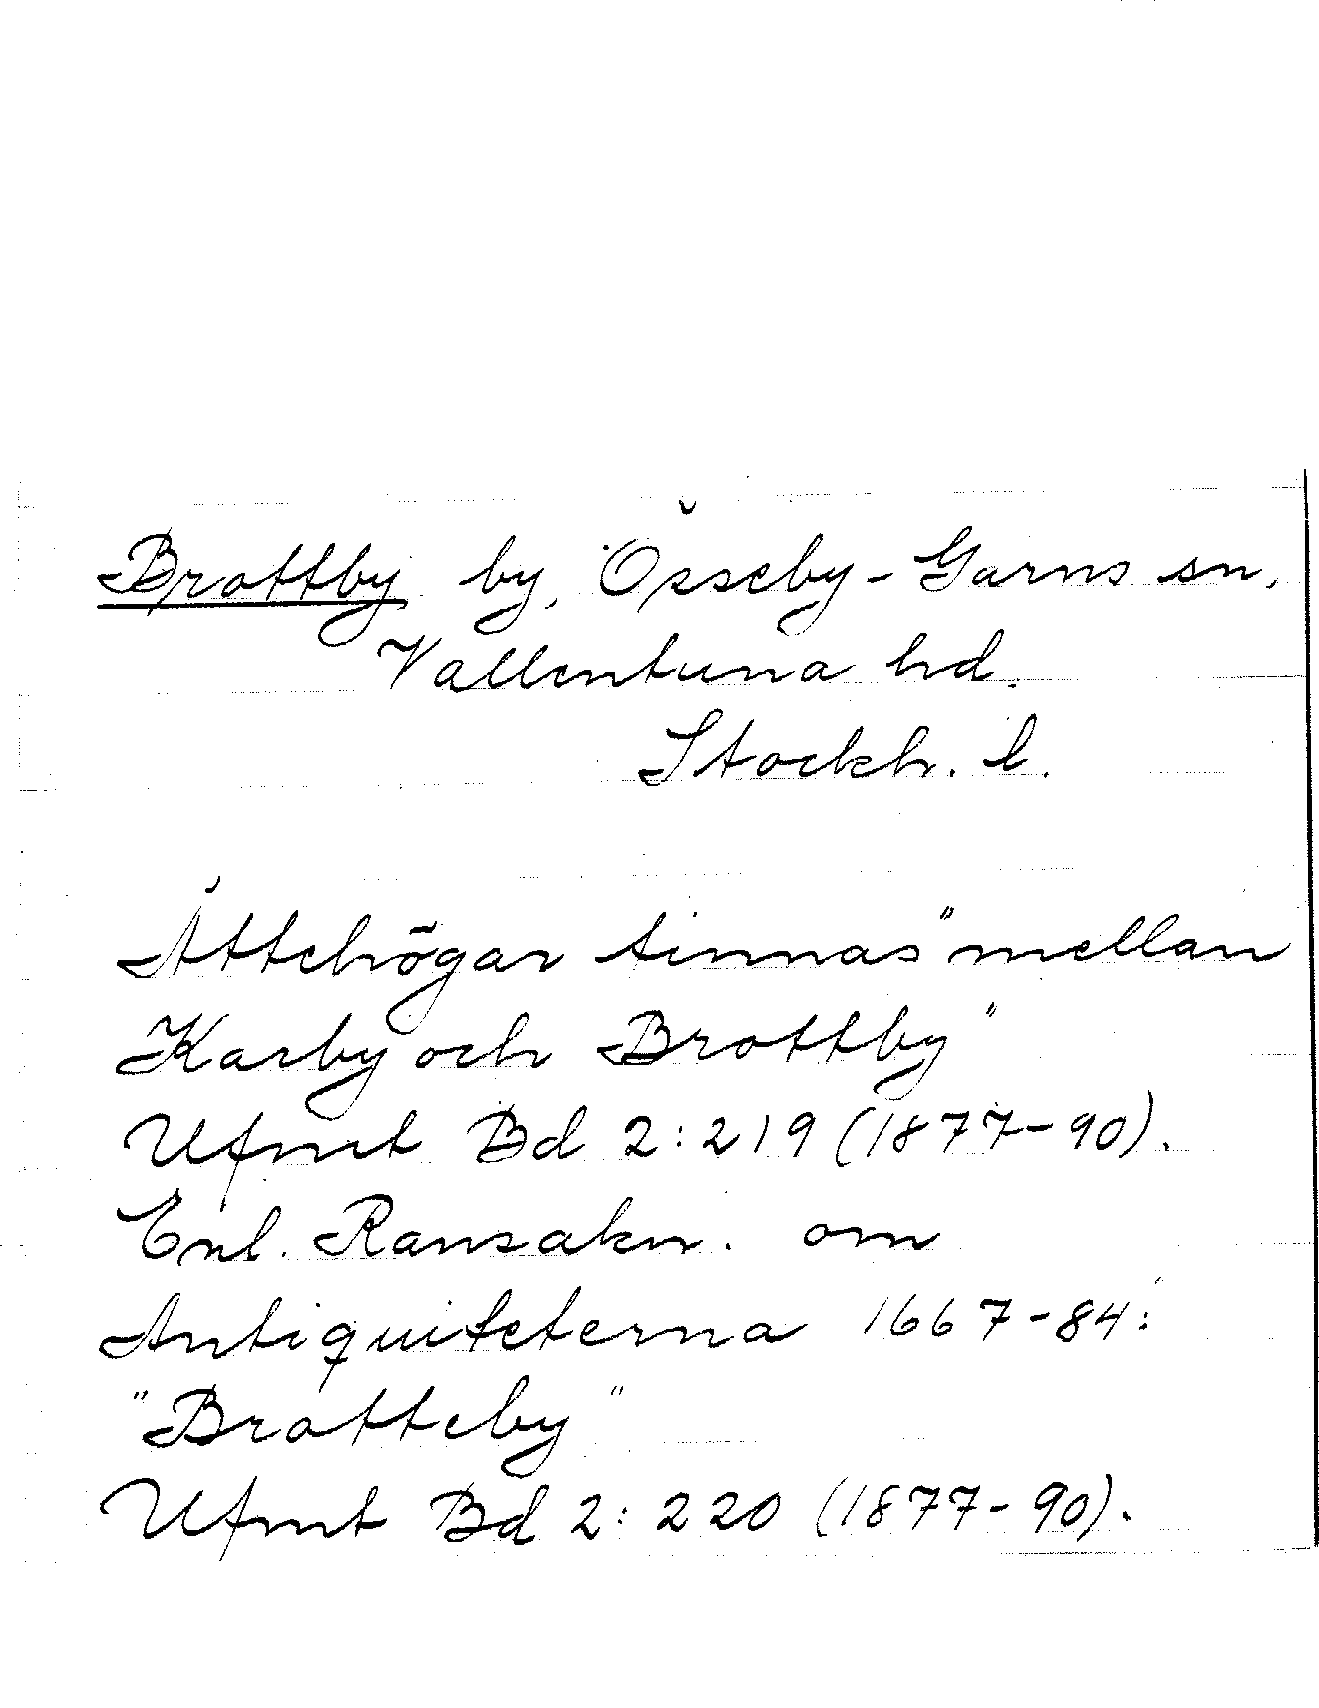 Brottby by, Össeby-Garns sn,
Vallentuna hd.
Stockh. l.
Ättehögar finnas "mellan
Karby och Brottby"
Ufmt Bd 2:219 (1877-90).
Enl. Ransakn. om
Antiquiteterna 1667-84:
"Brotteby"
Ufmt Bd 2:220 (1877-90).